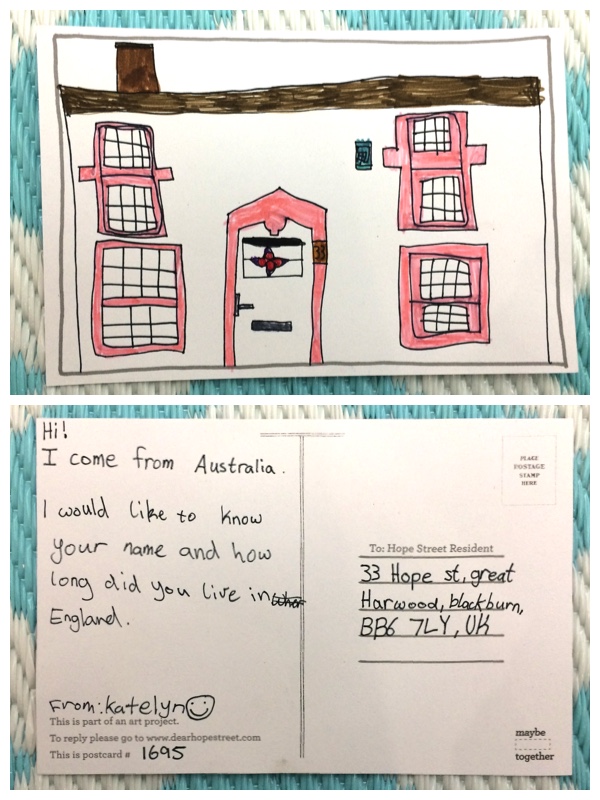 33
Hi!
I come from Australia.
I would like to know
your name and how
long did you live in
England.
From: katelyn
This is part of an art project.
To reply please go to www.dearhopestreet.com
This is postcard # 1695
PLACE
POSTAGE
STAMP
HERE
To: Hope Street Resident
33 Hope st, great
Harwood, blackburn,
BB6 7LY, UK
maybe
together